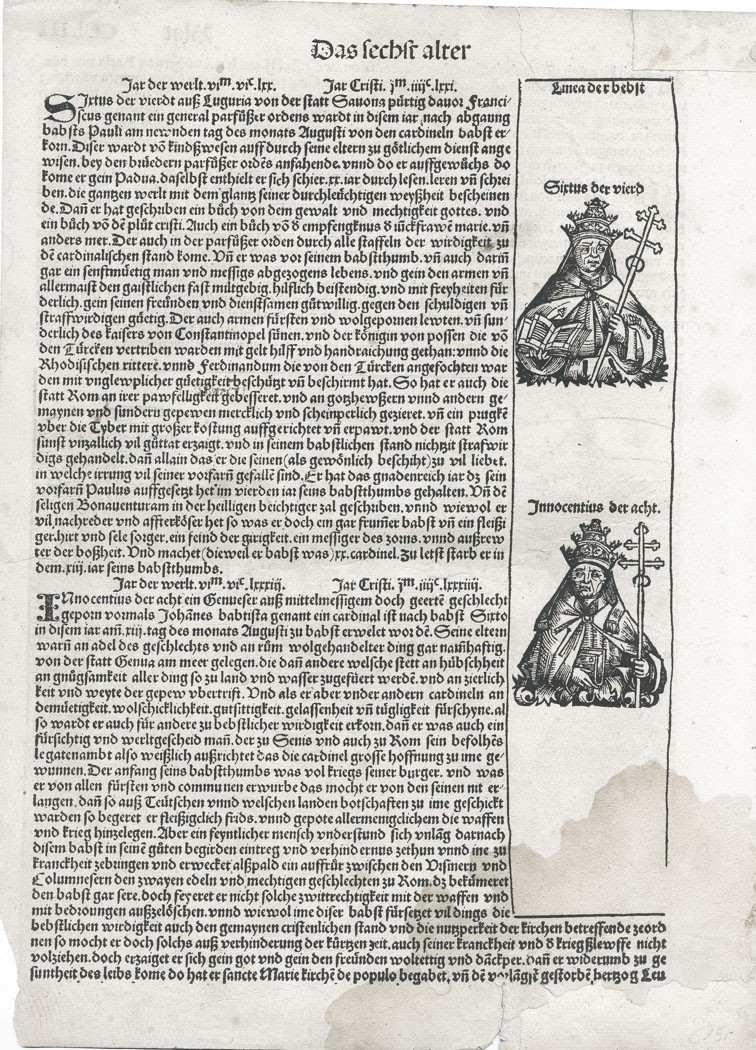 Das sechst alter
Jar der werlt.vi^m.vi^c.lxx. Jar Cristi. j^m.iiij^c.lxxi.
Linea der bebst
Sixtus der vierdt auß Luguria von der statt Sauona pürtig dauor Franci-
scus genant ein general parfüßer ordens wardt in disem iar nach abganng
babsts Pauli am newnden tag des monats Augusti von den cardineln babst er-
korn. Diser wardt võ kindßwesen auff durch seine eltern zu götlichem dienst ange
wisen. bey den brüedern parfüßer ordẽs anfahende. vnnd do er auffgewüchs do
kome er gein Padua. daselbst enthielt er sich schier .xx. iar durch lesen. leren vñ schrei
ben. die gantzen werlt mit dem glantz seiner durchleüchtigen weyßheit bescheinen
de. Dañ er hat geschriben ein bůch von dem gewalt vnd mechtigkeit gottes. vnd
ein bůch võ dẽ plůt cristi. Auch ein bůch võ d empfengknus d iũckfrawẽ marie. vñ
anders mer. Der auch in der parfüßer orden durch alle staffeln der wirdigkeit zu
dẽ cardinalischen stand kome. Vñ er was vor seinem babstthumb. vñ auch dariñ
gar ein senftmüetig man vnd messigs abgezogens lebens. vnd gein den armen vñ
allermaist den gaistlichen fast miltgebig. hilflich beistendig. vnd mit freyheiten für
derlich. gein seinen freünden vnd dienstsamen gütwillig. gegen den schuldigen vñ
straffwirdigen güetig. Der auch armen fürsten vnd wolgepornen lewten. vñ sun-
derlich des kaisers von Constantinopel sünen. vnd der königin von possen die võ
den Türcken vertriben warden mit gelt hilff vnd handraichung gethan: vnnd die
Rhodisischen rittere. vnnd Ferdinandum die von den Türcken angefochten war
den mit vnglewplicher güetigkeit beschützt vñ beschirmt hat. So hat er auch die
statt Rom an irer pawfelligkeit gebesseret. vnd an gotzhewßern vnnd andern ge-
maynen vnd sundern gepewen mercklich vnd scheinperlich gezieret. vñ ein prugkẽ
vber die Tyber mit großer kostung auffgerichtet vñ erpawt. vnd der statt Rom
sunst vnzallich vil gůttat erzaigt. vnd in seinem babstlichen stand nichtzit strafwir
digs gehandelt. dañ allain das er die seinen (als gewönlich beschiht) zu vil liebet.
in welche irrung vil seiner vorfarñ gefallẽ sind. Er hat das gnadenreich iar dz sein
vorfarñ Paulus auffgesetzt het im vierden iar seins babstthumbs gehalten. Vñ dẽ
seligen Bonauenturam in der heiligen beichtiger zal geschriben. vnnd wiewol er
vil nachreder vnd affterköser het so was er doch ein gar frum̃er babst vñ ein fleißi
ger. hirt vnd sele sorger. ein feind der girigkeit. ein messiger des zorns. vnnd außrew
ter der boßheit. Vnd machet (dieweil er babst was) xx. cardinel. Zu letst starb er in
dem .xiij. iar seins babstthumbs.
Sixtus der vierd
Jar der werlt.vi^m.vi^c.lxxxiij. Jar Cristi. j^m.iiij^c.lxxxiiij.
Innocentius der acht ein Genueser auß mittelmessigem doch geertẽ geschlecht
geporn vormals Johãnes babtista genant ein cardinal ist nach babst Sixto
in disem iar am̃ .xiij. tag des monats Augusti zu babst erwelet wordẽ. Seine eltern
warñ an adel des geschlechts vnd an rům wolgehandelter ding gar namhaftig.
von der statt Genua am meer gelegen. die dañ andere welsche stett an hübschheit
an gnůgsamkeit aller ding so zu land vnd wasser zugefüert werdẽ. vnd an zierlich
keit vnd weyte der gepew vbertrift. Vnd als er aber vnder andern cardineln an
demüetigkeit. wolschicklichkeit. gutsittigkeit. gelassenheit vñ tügligkeit fürschyne. al
so wardt er auch für andere zu bebstlicher wirdigkeit erkorn. dañ er was auch ein
fürsichtig vnd werltgescheid mañ. der zu Senis vnd auch zu Rom sein befolhẽs
legatenambt also weißlich außrichtet das die cardinel grosse hoffnung zu ime ge-
wunnen. Der anfang seins babstthumbs was vol kriegs seiner burger. vnd was
er von allen fürsten vnd communen erwurbe das mocht er von den seinen nit er-
langen. dañ so auß Teütschen vnnd welschen landen botschaften zu ime geschickt
warden so begeret er fleißigclich frids. vnnd gepote allermenigclichem die waffen
vnd krieg hinzelegen. Aber ein feyntlicher mensch vnderstund sich vnlãg darnach
disem babst in seinẽ gůten begirden eintreg vnd verhindernus zethun vnnd ine zu
kranckheit zebringen vnd erwecket alßpald ein auffrůr zwischen den Vrsinern vnd
Columnesern den zwayen edeln vnd mechtigen geschlechten zu Rom. dz bekümeret
den babst gar sere. doch feyeret er nicht solche zwittrechtigkeit mit der waffen vnd
mit bedroungen außzelöschen. vnnd wiewol ime diser babst fürsetzet vil dings die
bebstlichen wirdigkeit auch den gemaynen cristenlichen stand vnd die nutzperkeit der kirchen betreffende zeord
nen so mocht er doch solchs auß verhinderung der kürtzen zeit. auch seiner kranckheit vnd d kriegßlewffe nicht
volziehen. doch erzaiget er sich gein got vnd gein den freünden woltettig vnd dãckper. dañ er widerumb zu ge
suntheit des leibs kome do hat er sancte Marie kirchẽ de populo begabet. vñ dẽ vorlãgst gestorbẽ hertzog Leu
Innocentius der acht.